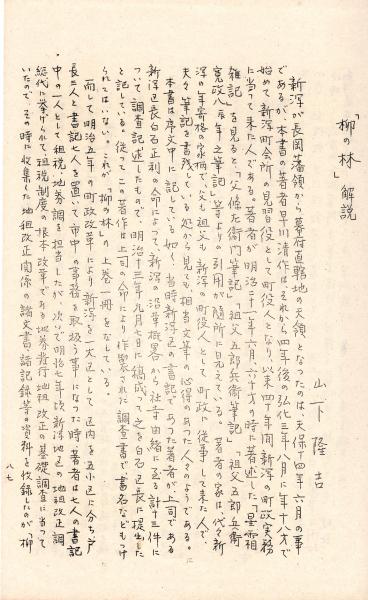 「柳の林」解説
山下隆吉
新潟が長岡藩領から幕府直轄地の天領となったのは、天保十四年六月の事
であるが、本書の著者早川清作は、それから四年後の弘化三年八月に年十八才で
始めて新潟町会所の見習役として町役人となり、以来四十年間、新潟の町政実務
に当って来た人である。著者が明治二十一年六月、六十才の時に著述した「星霜
雑記」を見ると、「父條左衛門筆記」「祖父五郎兵衛筆記」「祖父五郎兵衛
寛政八辰年之筆記」等よりの引用が随所に見えている。著者の家は、代々新
潟の年寄格の家柄で、父も祖父も新潟の町役人として町政に従事して来た人で、
夫々筆記を書残している処から見ても、相当文筆の心得のあった人々のようである。
本書は序文中に記している如く、当時新潟区の書記であった著者が上司である
新潟区長白石正利の命によって、新潟の沿革概畧から社寺由緒に至る計十三件に
ついて調査記述したもので、明治十三年九月七日に編成って之を白石区長に提出した
と記している。従ってこの著作は上司の命により作製された調査書で書名などもつけ
られてはいない。これが「柳の林」の上巻一冊をなしている。
而して明治五年の町政改革により新潟を一大区として区内を五小区に分ち戸
長三人と書記七人を置いて市中の事務を取扱う事になった時著者は七人の書記
中の一人として租税・地券調を担当したが、次いで明治七年頃新潟地区の地租改正調
総代に挙げられて、租税制度の根本改革である地券発行地租改正の基礎調査に当って
いたので、その時に収集した地租改正関係の諸文書諸記録等の資料を収録したのが「柳
八七